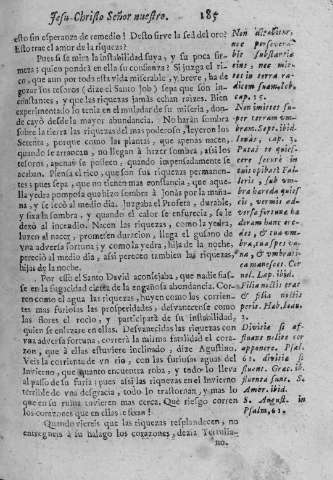 Jesu Christo Señor nuestro. 185
esto sin esperanza de remedio! Desto sirve la sed del oro?
Esto trae el amor de la riqueza?
Pues si se mira la instabilidad suya, y su poca firmeza;
quien pondrà en ella su confianza? Si juzga el rico,
que aun por toda esta vida miserable, y breve, ha de
gozar los tesoros; dize el Santo Job) sepa que son inconstantes,
y que las riquezas jamàs echan raizes. Bien
experimentado lo tenia en el muladar de su miseria, donde
cayò desde la mayor abundancia. No haràn sombra
sobre la tierra las riquezas del mas poderoso, leyeron los
Setenta, porque como las plantas, que apenas nacen,
quando se arrancan, no llegan à hazer sombra, assi los
tesoros, apenas se posseen, quando impensadamente se
acaban. Piensa el rico, que son sus riquezas permanentes;
pues sepa, que no tienen mas constancia, que aquella
yedra pomposa que hizo sombra à Jonàs por la mañana,
y se secò al medio dia. Juzgaba el Profeta, durable,
y fixa la sombra, y quando el calor se enfurece, se la
dexò al incendio. Nacen las riquezas, como la yedra,
luzen al nacer, prometen duracion, llega el gusano de
vna adversa fortuna; y como la yedra, hija de la noche,
pereciò al medio dia, assi perecen tambien las riquezas,
hijas de la noche.
Por esso el Santo David aconsejaba, que nadie fiasse
en la fugacidad
de la engañosa abundancia. Corren
como el agua las riquezas, huyen como las corrientes
mas furiosas las prosperidades, desvanecense como
las flores el rocio, y participarà de su instabilidad,
quien se enlazare en ellas. Desvanecidas las riquezas con
vna adversa fortuna, correrà la misma fatalidad el corazon,
que à ellas estuviere inclinado, dize Agustino.
Veis la corriente de vn rio, con las furiosas aguas del
Invierno, que quanto encuentra roba, y todo lo lleva
al passo de su furia; pues assi las riquezas en el Invierno
terrible de vna desgracia, todo lo trastornan, y mas lo
que en su ruina tuvieren mas cerca. Què riesgo corren
los corazones que en ellas se fixan!
Quando viereis que las riquezas resplandecen, no
entregueis à su halago los corazones, dezia Tertuliano.
Non ditabitur,
nec perseverabit
substantia
eius, nec mittet
in terra radicem
suam, Job,
cap. 15.
Non imittet super
terram umbram.
Sept. ibid.
Jonàs, cap. 3.
Filia noctis erat
& filia noctis
perijt.
Divitiæ si affluant
nolite cor
apponere. Psalm.
61.
S. August. in
Psalm, 61.